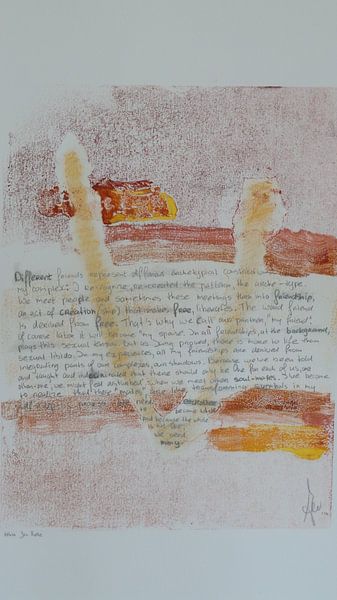 Different friends represent different archetypical constructions
my complexes. I recognise, reconnected the pattern, the arche-type.
We meet people and sometimes these meetings turn into friendship,
an act of creation (ship) that makes free, liberates. The word friend
is derived from free. That's why we call our partner "my friend"
of course later it will become "my spouse. In all friendships, at the background,
plays this sexual tension but as Jung proposed, there is more to life than
sexual libido. In my experiences, all my friendships are derived from
interesting points of our complexes, our shadows. Because we've been told
and taught and that there should only be one for each of us, one
we might feel when we meet other soul-mates. I've become
to realize that these mates essentials in my
we need eachother
become whole
and because the whole
is not
we need
many